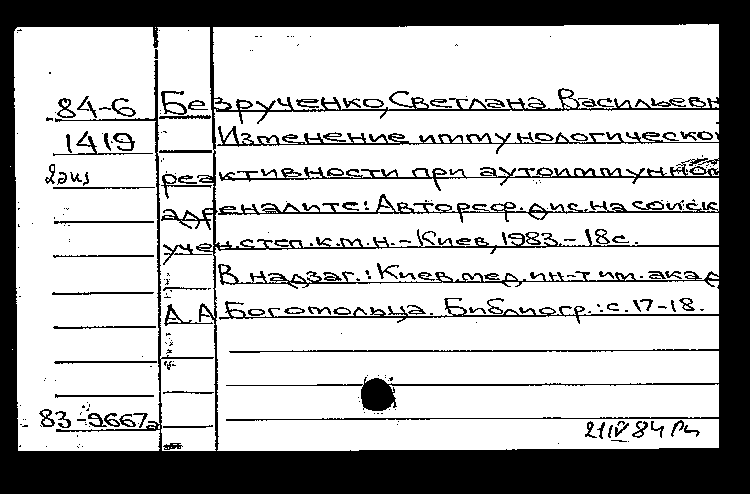 84-6 Безрученко, Светлана Васильевн
1419 Изменение иммунологическо
2экз реактивности при аутоиммунном
адреналите: Автореф. дис. на соиск
учен. степ. к.м.н. - Киев, 1983. - 18с.
В надзаг.: Киев. мед. ин-т им. акад
А.А Богомольца. Библиогр.: с. 17-18.
83-9667а
21 IV 84